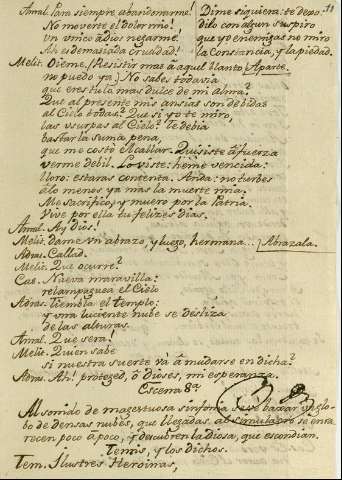 Amal. Para siempre abandonarme!
No moverte el dolor mio!
Un unico adios negarme!
Ah es demasiada crueldad!
Dime siquiera: te dexo.
Dilo con algun suspiro
que yo enemigas no miro
la Constancia, y la piedad.
11
Melit. Oieme, (Resistir mas á aquel llanto Aparte.
no puedo ya) No sabes todavia
que eres tu lo mas dulce de mi alma?
Que al presente mis ansias son debidas
al Cielo todas? Que si yo te miro,
las usurpas al Cielo? Te debia
bastar la suma pena,
que me costó el callar. Quisiste á fuerza
verme debil. Lo viste: heme vencida:
lloro: estaras contenta. Anda: no turbes
á lo menos ya mas la muerte mia.
Me sacrifico, y muero por la Patria.
Vive por ella tu felizes dias.
Amal. Ay Dios!
Melit. dame un abrazo, y luego, hermana... Abrazala.
Adras. Callad.
Melit. Que ocurre?
Cas. Nueva maravilla:
relampaguea el Cielo
Adras. Tiembla el templo;
y una luciente nube se desliza
de las alturas.
Amal. Que sera?
Melit. Quien sabe
si nuestra suerte vá á mudarse en dicha?
Adras. Ah! proteged, ó dioses, mi esperanza.
Escena 8ª
Al sonido de magestuosa sinfonia se ve baxar un glo-
bo de densas nubes, que llegadas, al simulacro se enra-
recen poco a poco, y descubren la diosa, que escondian.
Temis, y los dichos.
Tem. Ilustres Heroinas,